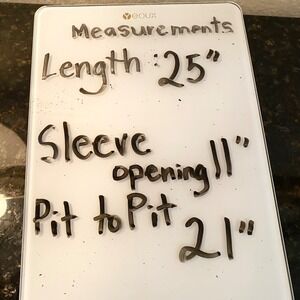 Yeoux
Measurements
Length: 25"
Sleeve
opening 11"
Pit to Pit
21"